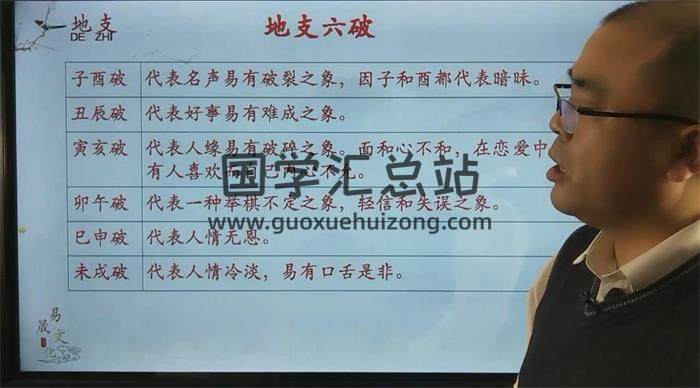 地支
DE ZHI
地支六破
子酉破 代表名声易有破裂之象，因子和酉都代表暗昧。
丑辰破 代表好事易有难成之象。
寅亥破 代表人缘易有破碎之象。面和心不和，在恋爱中
有人喜欢而自己内心不允。
国学汇总站
www.guoxuehuizong.com
卯午破 代表一种举棋不定之象，轻信和失误之象。
巳申破 代表人情无恩。
未戌破 代表人情冷淡，易有口舌是非。
易
晟
文
化